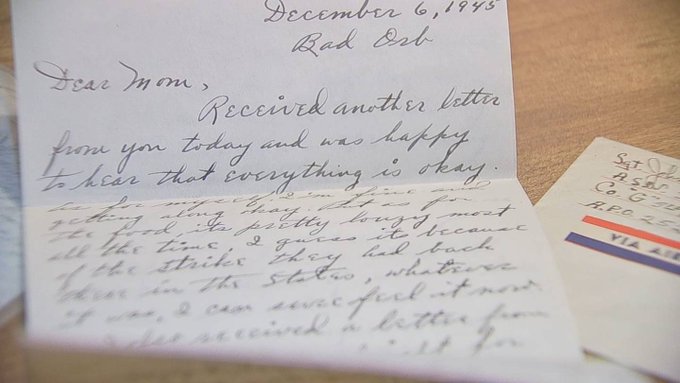 December 6, 1945
Bad Orb
Dear Mom,
Received another letter
from you today and was happy
to hear that everything is okay.
As for myself, I'm fine and
getting along okay. But as for
the food its pretty lousy most
all the time. I guess it because
of the strike they had back
there in the States, whatever
it was, I can sure feel it now.
I also received a letter from
Sgt. Joh
Co G
A.P.O. 25
VIA AIR